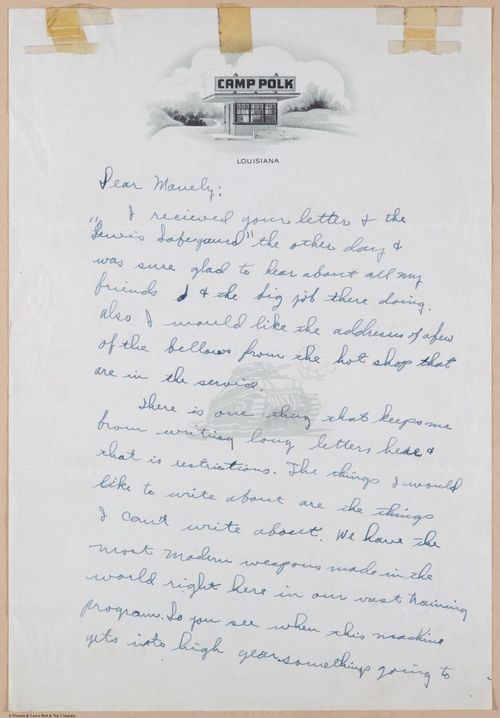 CAMP POLK
LOUISIANA
Dear Manely:
I recieved your letter & the
"Lewis Safegaurd" the other day &
was sure glad to hear about all my
friends & the big job there doing.
also I would like the addresses of a few
of the bellows from the hot shop that
are in the service.
There is one thing that keeps me
from writing long letters here &
that is restrictions. The things I would
like to write about are the things
I cant write about. We have the
most modern weapons made in the
world right here in our vast training
program. So you see when this machine
gets into high gear somethings going to
© Pressed & Lewis Bolt & Nut Company